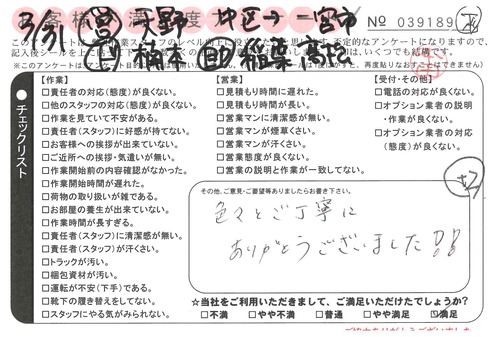 3/31 営 天野 中区→一宮市
No 039189
㊤ 橋本 ㊣ 稲葉 高
チェックリスト
【作業】
□責任者の対応(態度)が良くない。
□他のスタッフの対応(態度)が良くない。
□作業を見ていて不安がある。
□責任者(スタッフ)に好感が持てない。
□お客様への挨拶が出来ていない。
□ご近所への挨拶・気遣いが無い。
□作業開始前の内容確認がなかった。
□作業開始時間が遅れた。
□荷物の取り扱いが雑である。
□お部屋の養生が出来ていない。
□作業時間が長すぎる。
□責任者(スタッフ)に清潔感が無い。
□責任者(スタッフ)が汗くさい。
□トラックが汚い。
□梱包資材が汚い。
□運転が不安(下手)である。
□靴下の履き替えをしてない。
□スタッフにやる気がみられない。
【営業】
□見積もり時間に遅れた。
□見積もり時間が長い。
□営業マンに清潔感が無い。
□営業マンが煙草くさい。
□営業マンが汗くさい。
□営業態度が良くない。
□営業の説明と作業が一致してない。
【受付・その他】
□電話の対応が良くない。
□オプション業者の説明
・作業が良くない。
□オプション業者の対応
(態度)が良くない。
その他、ご意見・ご要望等ありましたらお書き下さい。
色々とご丁寧に
ありがとうございました!!
☆当社をご利用いただきまして、ご満足いただけたでしょうか?
□不満 □やや不満 □普通 □やや満足 ☑満足